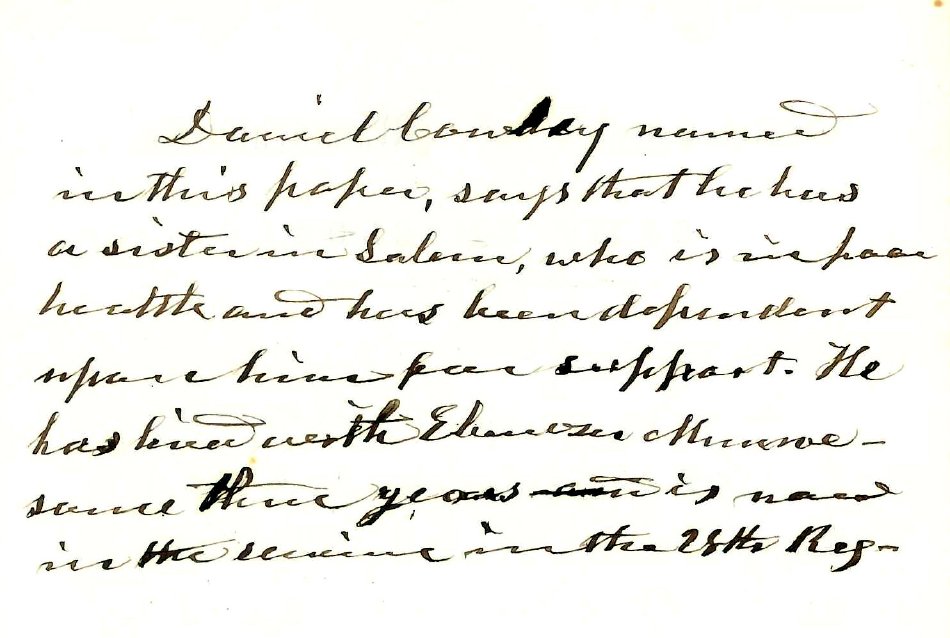 Daniel Conway named
in this paper, says that he has
a sister in Salem, who is in poor
health and has been dependent
upon him for support. He
has lived with Ebenezer Munroe -
some three years and is now
in the service in the 28th Reg-